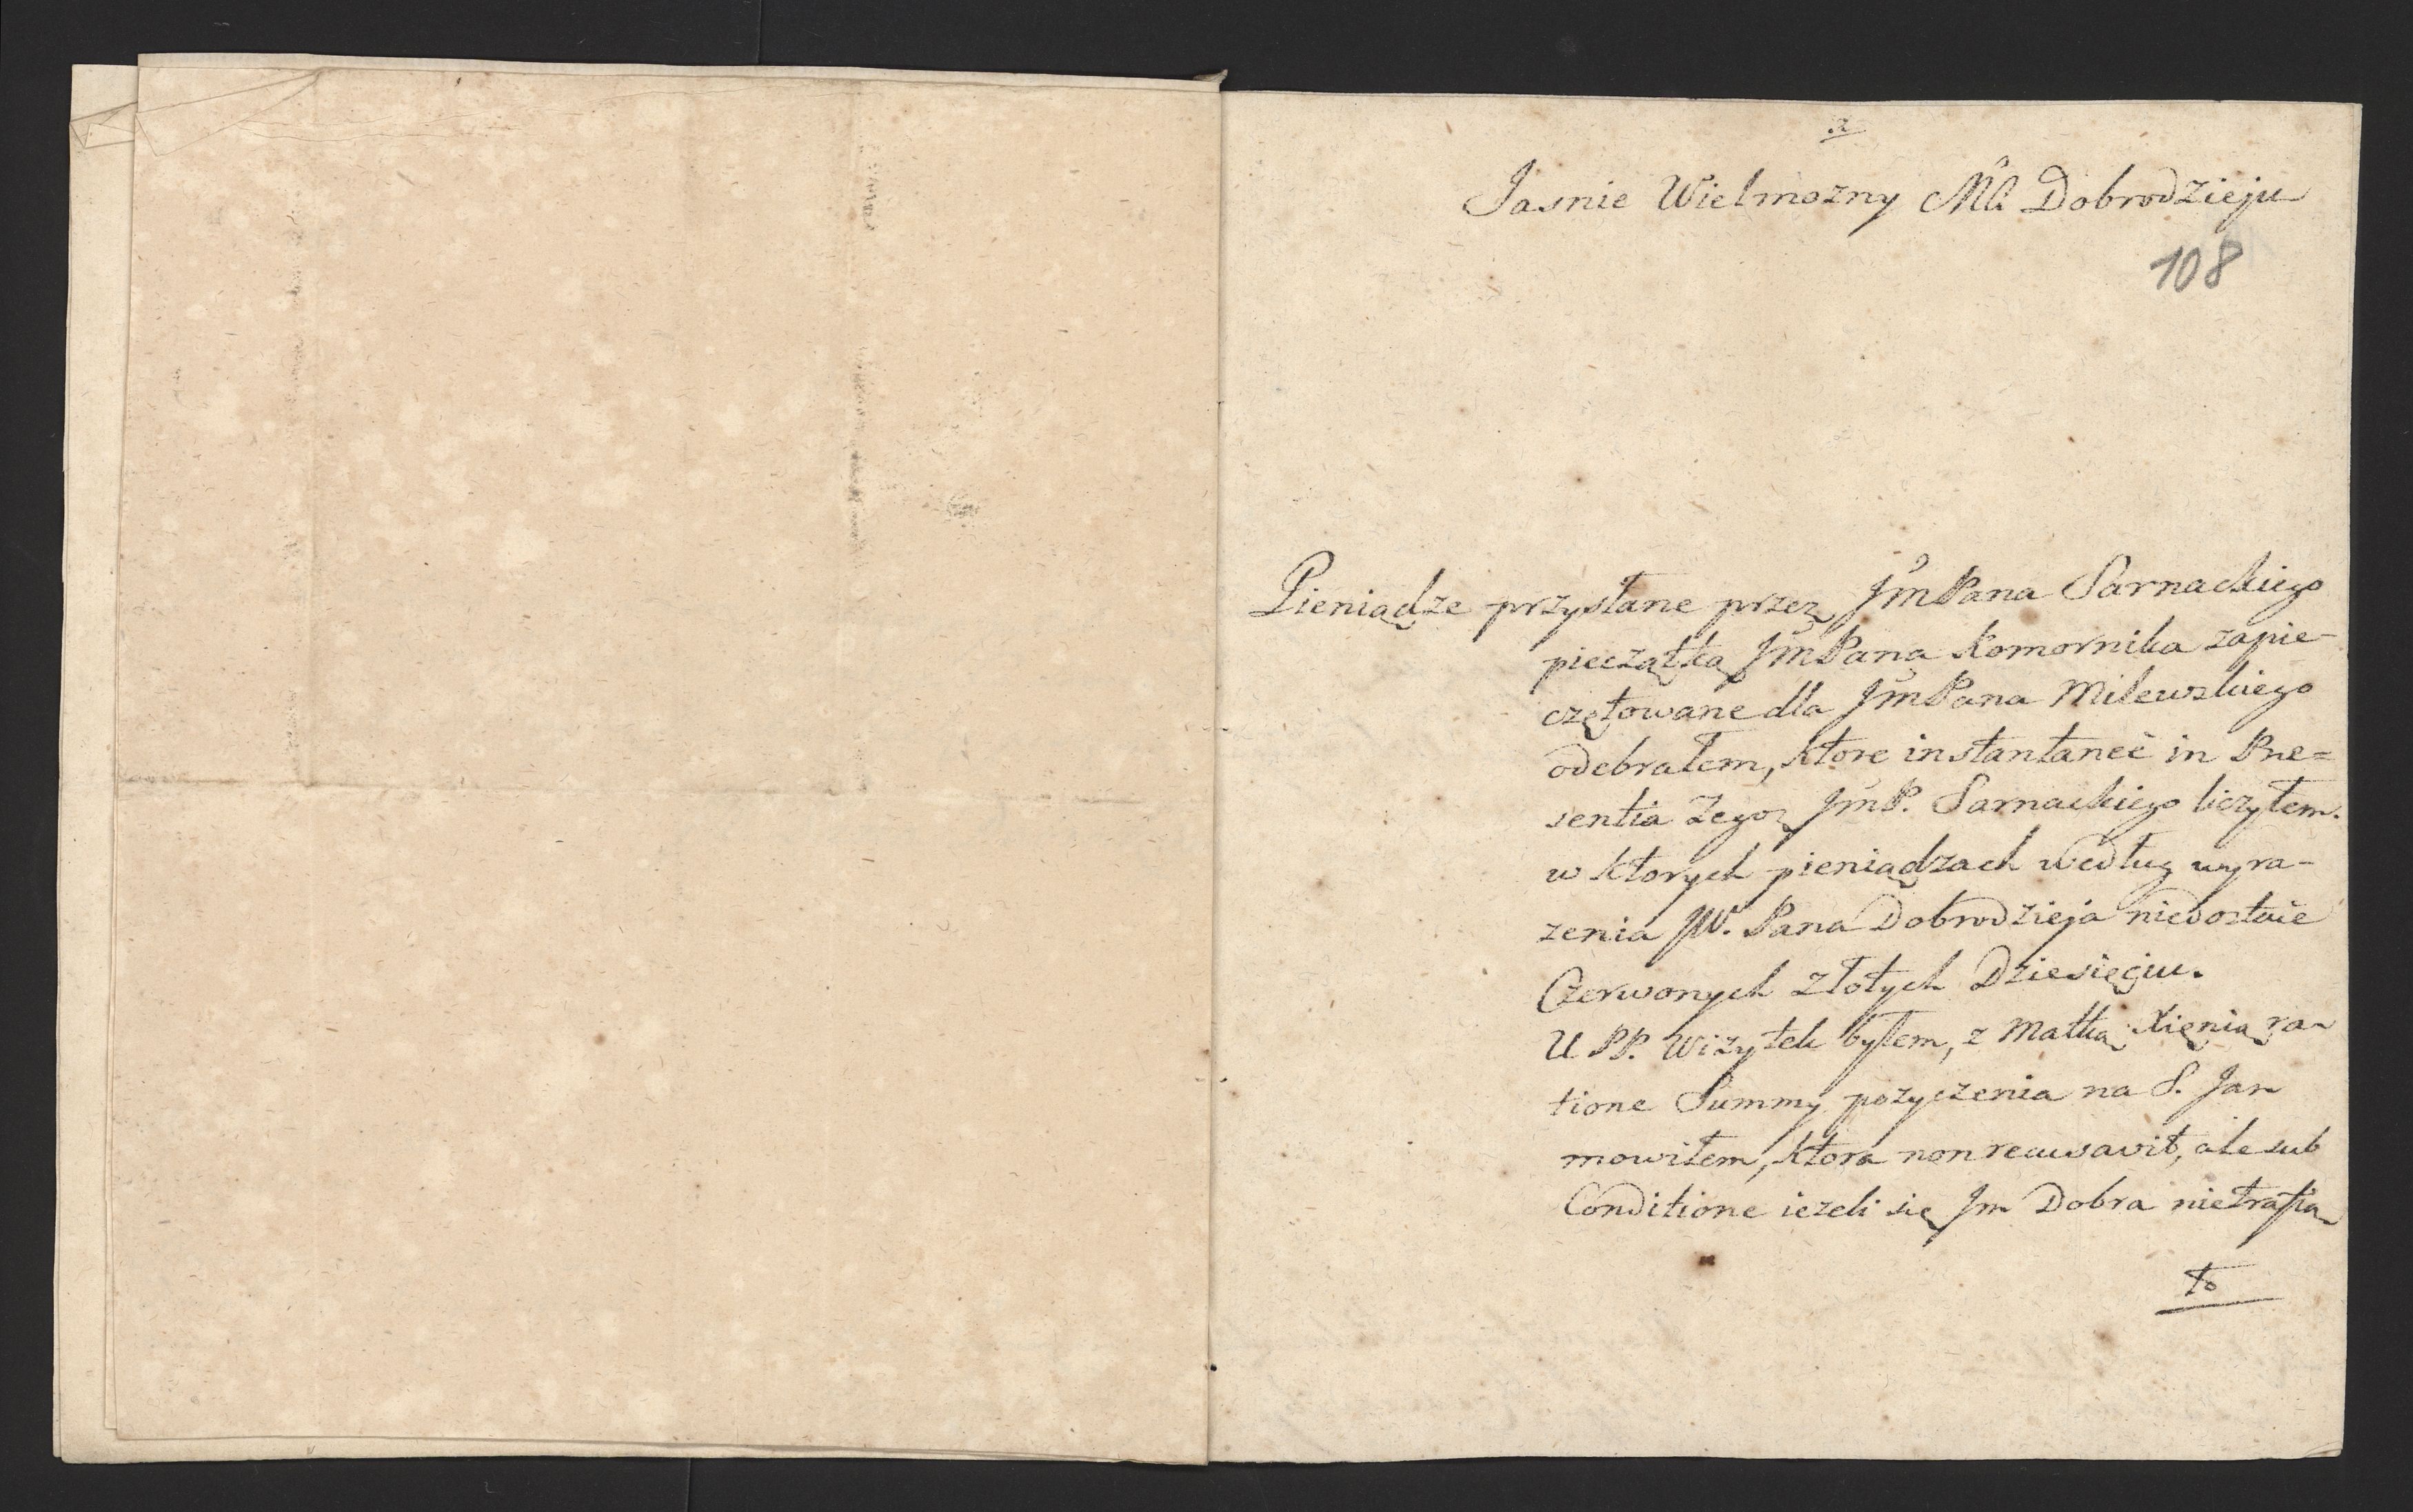 Jasnie Wielmozny Mći Dobrodzieju
108
Pieniądze przysłane przez JmPana Sarnackiego
pieczątką JmPana Komornika zapie-
czętowane dla JmPana Milewskiego
odebrałem, ktore instantaneè in Præ=
sentia Tegoz JmP. Sarnackiego liczyłem.
w ktorych pieniądzach według wyra-
zenia JW. Pana Dobrodzieja niedostaie
Czerwonych Złotych Dziesięciu.
U PP. Wizytek byłem, z Matką Xienią ra-
tione Summy pozyczenia na S. Jan
mowiłem, ktora non recusavit, ale sub
Conditione iezeli się Jm Dobra nietrafią
to